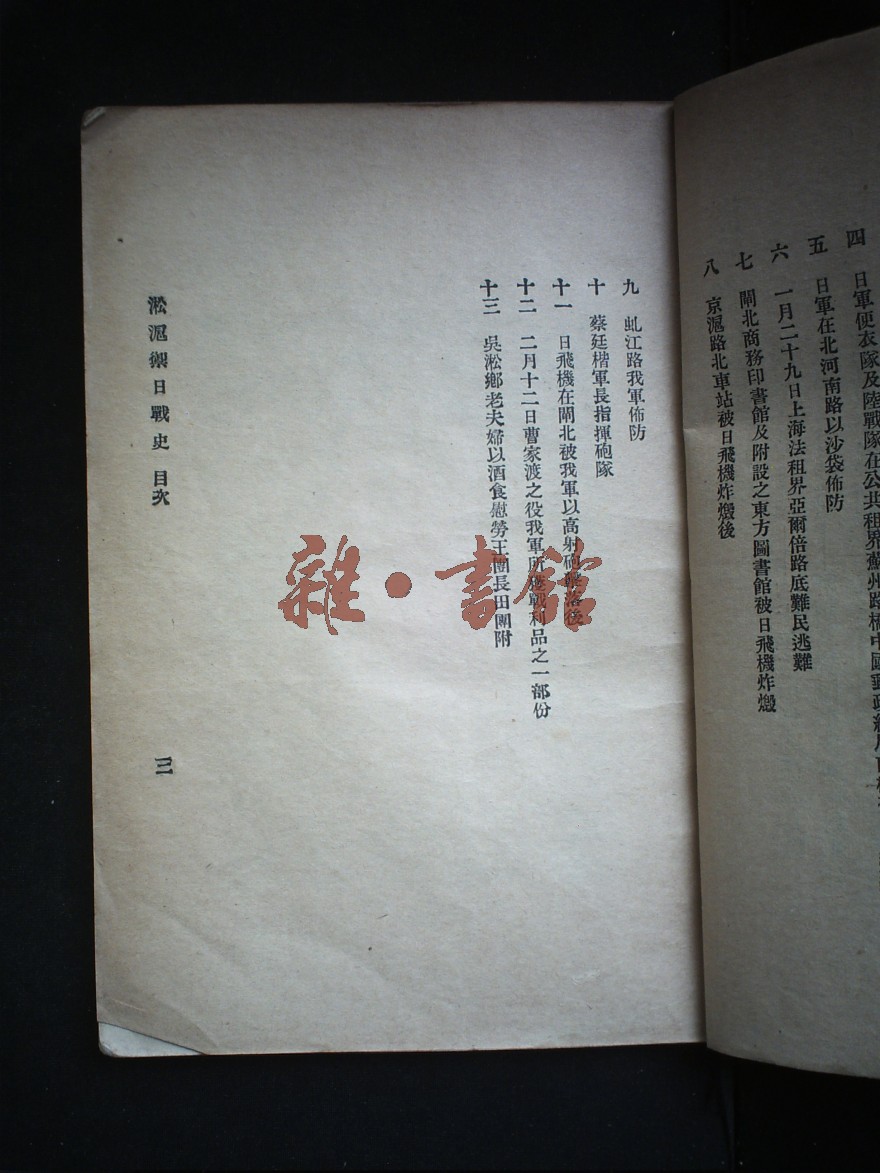 四 日軍便衣隊及陸戰隊在公共租界蘇州路橋中國郵政總局
五 日軍在北河南路以沙袋佈防
六 一月二十九日上海法租界亞爾倍路底難民逃難
七 閘北商務印書館及附設之東方圖書館被日飛機炸燬
八 京滬路北車站被日飛機炸燬後
九 虬江路我軍佈防
十 蔡廷楷軍長指揮砲隊
十一 日飛機在閘北被我軍以高射砲擊落後
十二 二月十二日曹家渡之役我軍所獲戰利品之一部份
十三 吳淞鄉老夫婦以酒食慰勞王團長田團附
淞滬禦日戰史 目次
三
雜·書館